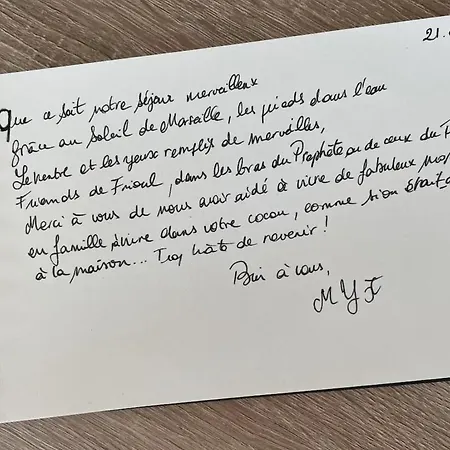 21.
Que ce soit notre séjour merveilleux
Grâce au Soleil de Marseille, les pieds dans l'eau
Le ventre et les yeux remplis de merveilles,
Friands de Frioul, dans les bras du Prophète ou de ceux du
Merci à vous de nous avoir aidé à vivre de fabuleux
en famille à vivre dans votre cocon, comme si on était
à la maison... Trop hâte de revenir !
à vous,
M Y